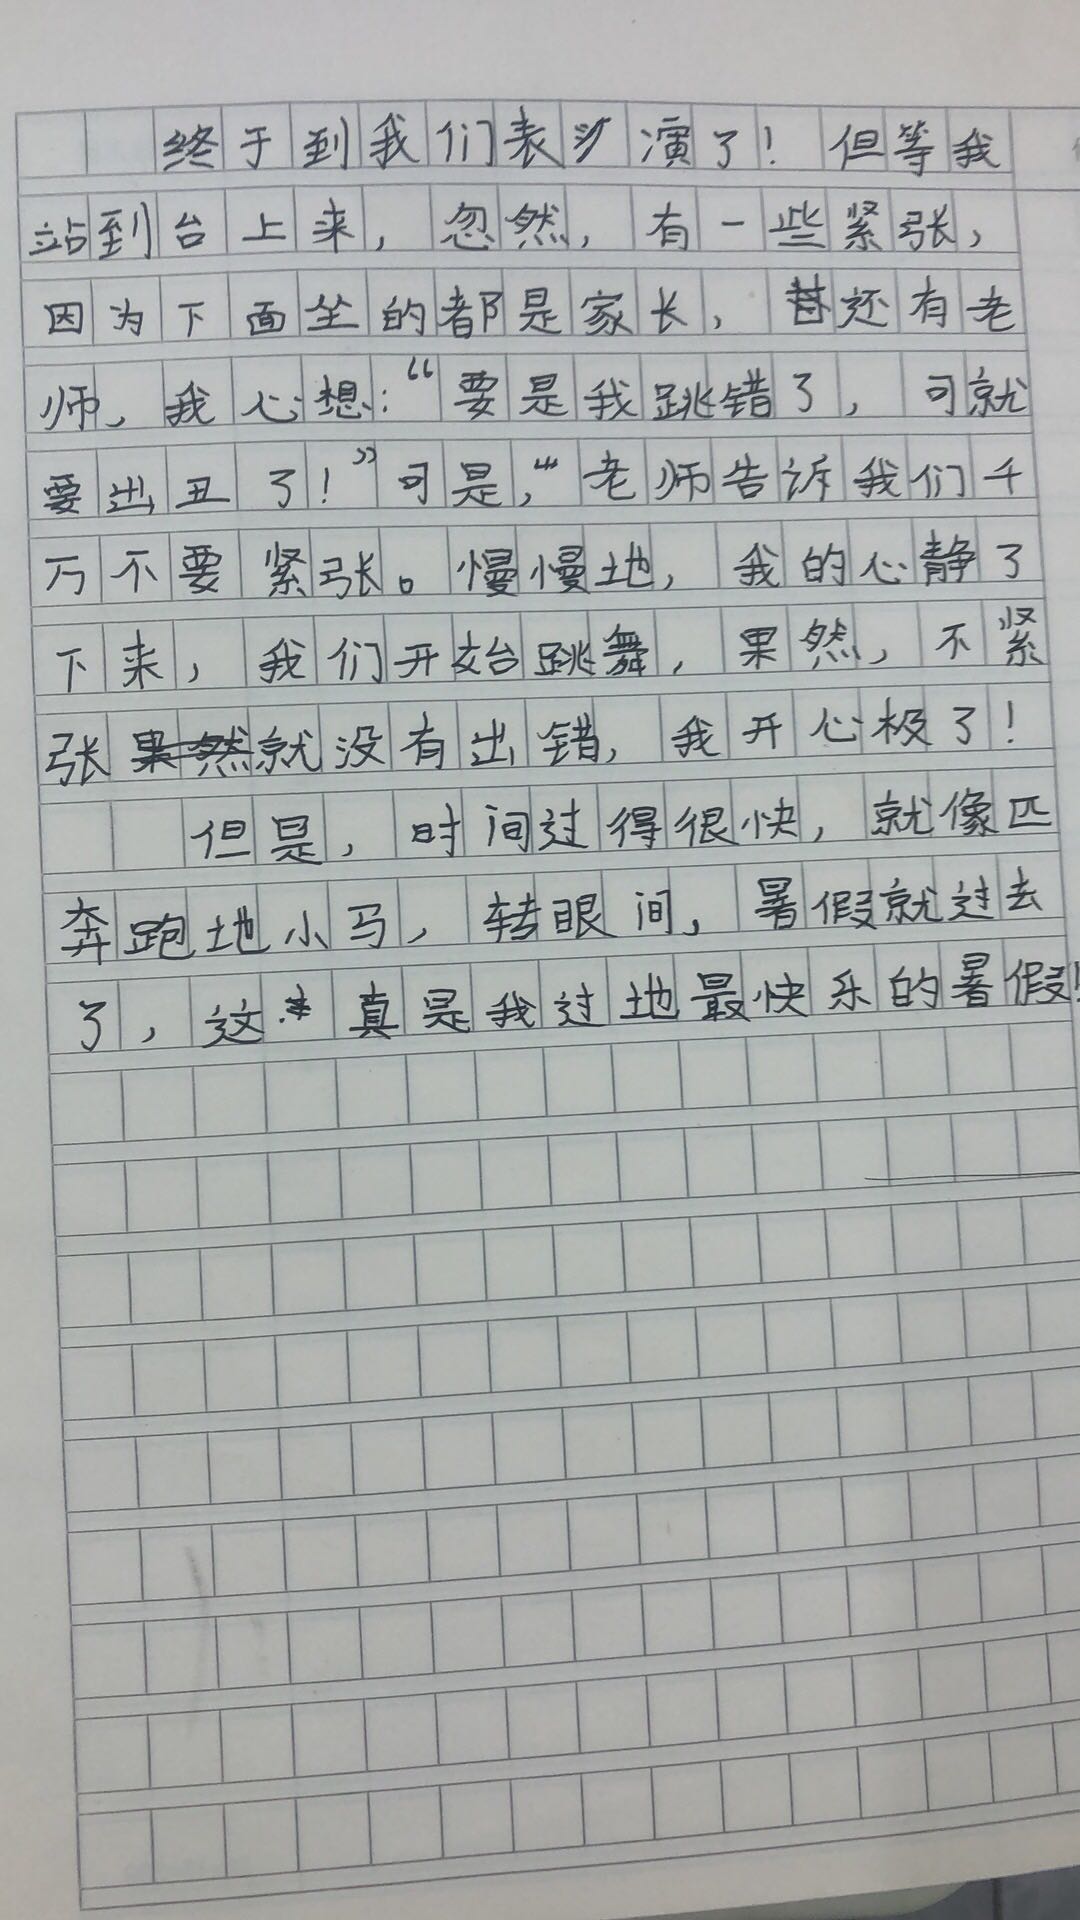 终于到我们表演了！但等我
站到台上来，忽然，有一些紧张，
因为下面坐的都是家长，还有老
师，我心想：“要是我跳错了，可就
要出丑了！”可是，“老师告诉我们千
万不要紧张。慢慢地，我的心静了
下来，我们开始跳舞，果然，不紧
张果然就没有出错，我开心极了！
但是，时间过得很快，就像匹
奔跑地小马，转眼间，暑假就过去
了，这真是我过地最快乐的暑假！